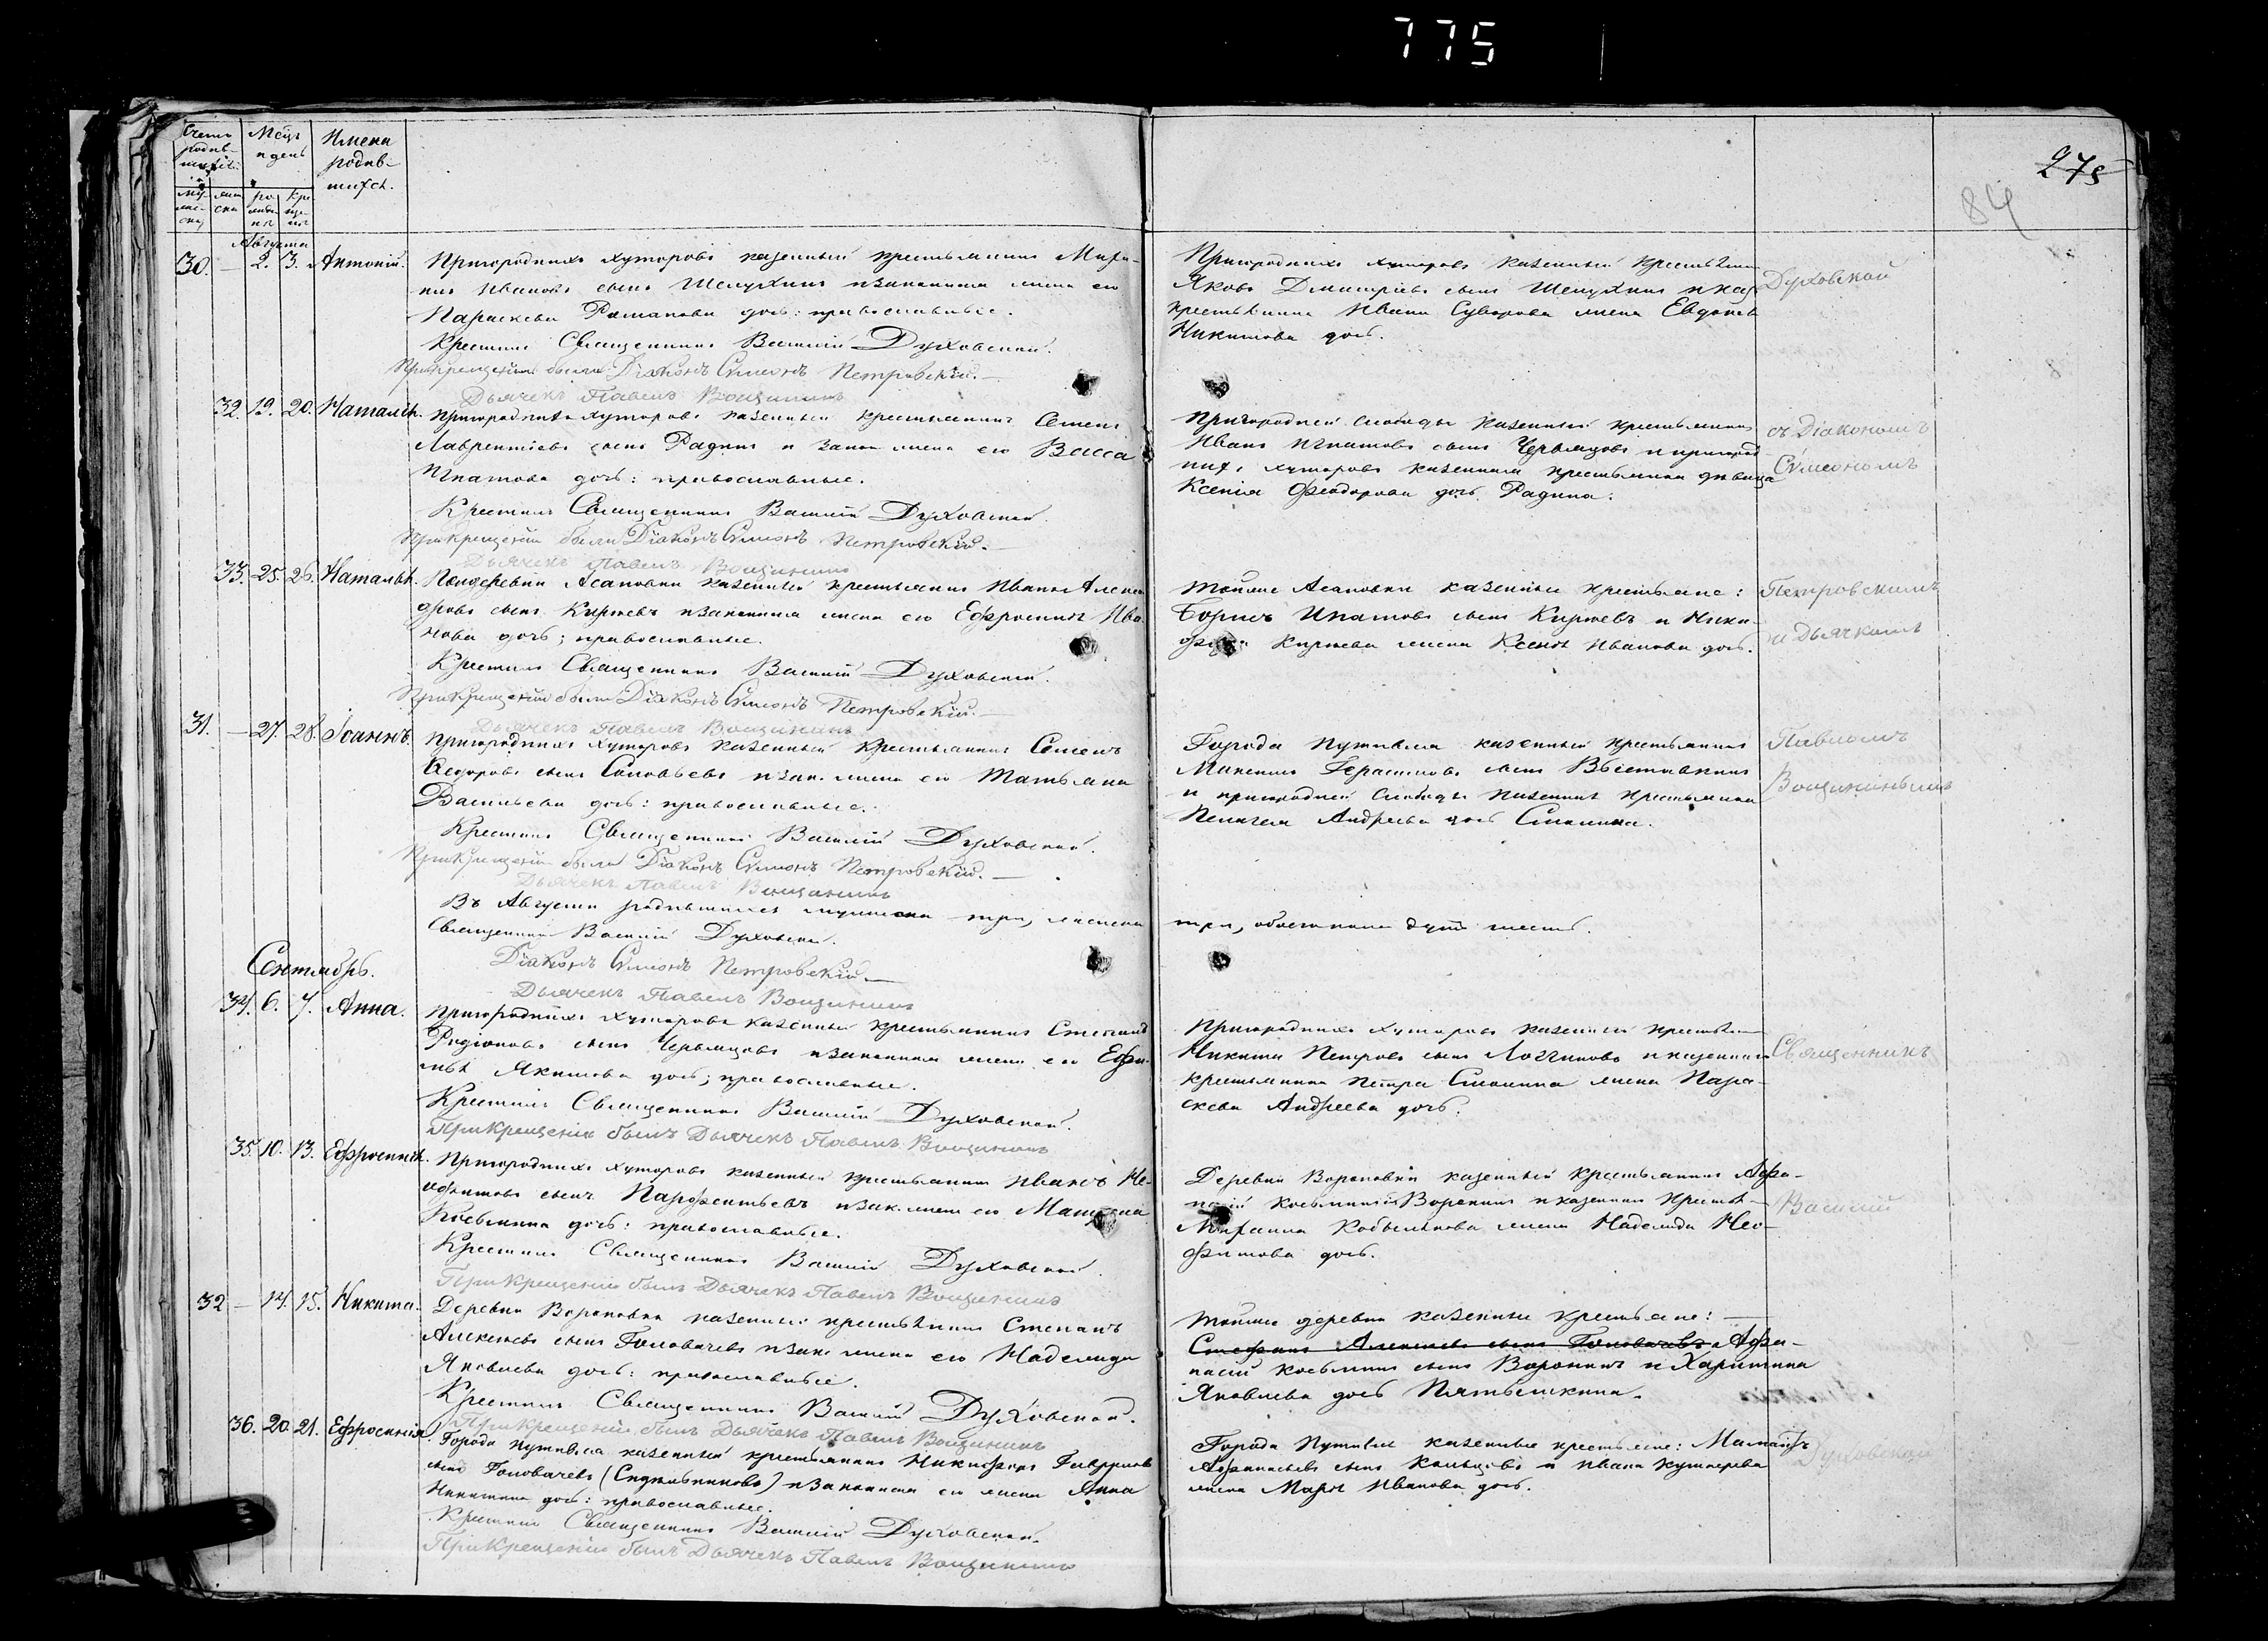 775
275
84
Счетъ родив-шихся
Мсцъ и день
Имена родив-шихся.
Августа
30. — 2. 3. Антоній. Пригородныхъ хуторовъ казенный крестьянинъ Миха-
илъ Ивановъ сынъ Шелухинъ и законная жена его
Параскева Романова дочь: православные.
Крестилъ Священникъ Василій Духовской.
При крещеніи были Діаконъ Сѵмеонъ Петровскій.—
Дьячекъ Павелъ Вощининъ
Пригородныхъ хуторовъ казенный крестьянинъ
Яковъ Дмитріевъ сынъ Шелухинъ и каз.
крестьянина Ивана Суворова жена Евдокія
Никитова дочь.
Духовской
32. 19. 20. Наталія. Пригородныхъ хуторовъ казенный крестьянинъ Семенъ
Лаврентіевъ сынъ Радинъ и закон. жена его Васса
Игнатова дочь: православные.
Крестилъ Священникъ Василій Духовской.
При крещеніи были Діаконъ Сѵмеонъ Петровскій.—
Дьячекъ Павелъ Вощининъ
Пригородней слободы казенный крестьянинъ
Иванъ Игнатовъ сынъ Черемцовъ и пригород-
ныхъ хуторовъ казеннаго крестьянина дѣвица
Ксенія Феодорова дочь Радина.
съ Діакономъ
Сѵмеономъ
33. 25. 26. Наталія. деревни Асановки казенный крестьянинъ Иванъ Алексан-
дровъ сынъ Киржевъ и законная жена его Ефросинія Ива-
нова дочь; православные.
Крестилъ Священникъ Василій Духовской.
При крещеніи были Діаконъ Сѵмеонъ Петровскій.—
Дьячекъ Павелъ Вощининъ
Тойже Асановки казенные крестьяне:
Борисъ Игнатовъ сынъ Киржевъ и Ники-
Киржева жена Ксенія Иванова дочь.
Петровскимъ
и Дьячкомъ
31. — 27. 28. Іоаннъ. Пригородныхъ хуторовъ казенный крестьянинъ Семенъ
Ѳедоровъ сынъ Соловьевъ и зак. жена его Татьяна
Васильева дочь: православные.
Крестилъ Священникъ Василій Духовской.
При крещеніи были Діаконъ Сѵмеонъ Петровскій.—
Дьячекъ Павелъ Вощининъ
Города Путивля казенный крестьянинъ
Герасимовъ сынъ Выставкинъ
и пригородней слободы казеннаго крестьянина
Пелагея Андреева дочь Стокина.
Павломъ
Вощининымъ
Въ Августѣ родившихся мужеска — три, женска
три, обоего пола душъ шесть.
Священникъ Василій Духовской.
Діаконъ Сѵмеонъ Петровскій.—
Дьячекъ Павелъ Вощининъ
Сентябрь.
34. 6. 7. Анна. Пригородныхъ хуторовъ казенный крестьянинъ Стефанъ
Родіоновъ сынъ Черемцовъ и законная жена его Ефи-
мія Якимова дочь; православные.
Крестилъ Священникъ Василій Духовской.
При крещеніи былъ Дьячекъ Павелъ Вощининъ
Пригородныхъ хуторовъ казенный крестьянинъ
Никита Петровъ сынъ Логгиновъ и казеннаго
крестьянина Петра Стокина жена Пара-
скева Андреева дочь.
Священникъ
35. 10. 13. Ефросинія. Пригородныхъ хуторовъ казенный крестьянинъ Иванъ Не-
офитовъ сынъ Парфентьевъ и зак. жена его Матрена
Косьмина дочь: православные.
Крестилъ Священникъ Василій Духовской.
При крещеніи былъ Дьячекъ Павелъ Вощининъ
Деревни Вороновки казенный крестьянинъ Афа-
насій Косьминъ Воронинъ и казеннаго крест.
Михаила Кобылякова жена Надежда Нео-
фитова дочь.
Василій
32 — 14. 15. Никита. Деревни Вороновки казенный крестьянинъ Степанъ
Алексѣевъ сынъ Головачевъ и зак. жена его Надежда
Яковлева дочь: православные.
Крестилъ Священникъ Василій Духовской.
При крещеніи былъ Дьячекъ Павелъ Вощининъ
Тойже деревни казенные крестьяне:
Стефанъ Алексѣевъ сынъ Головачевъ Афа-
насій Косьминъ сынъ Воронинъ и Харитина
Яковлева дочь Пятышкина.
36. 20. 21. Ефросинія. Города Путивля казенный крестьянинъ Никифоръ Гавриловъ
сынъ Головачевъ и законная его жена Анна
Никитина дочь: православные.
Крестилъ Священникъ Василій Духовской.
При крещеніи былъ Дьячекъ Павелъ Вощининъ
Города Путивля казенные крестьяне:
Афанасьевъ сынъ Кольцовъ и Ивана
жена Марія Иванова дочь.
Духовской